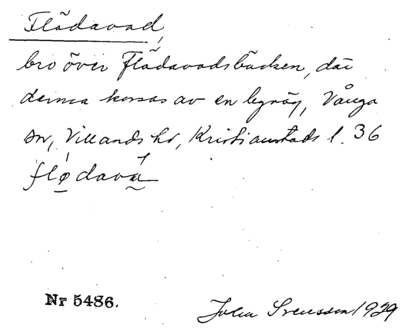 Flädavad,
bro över Flädavadsbäcken, där
denna korsas av en byväg, Vånga
sn, Villands hd, Kristianstads l. 36
flø̱dava̰
Nr 5486.
John Svensson 1929